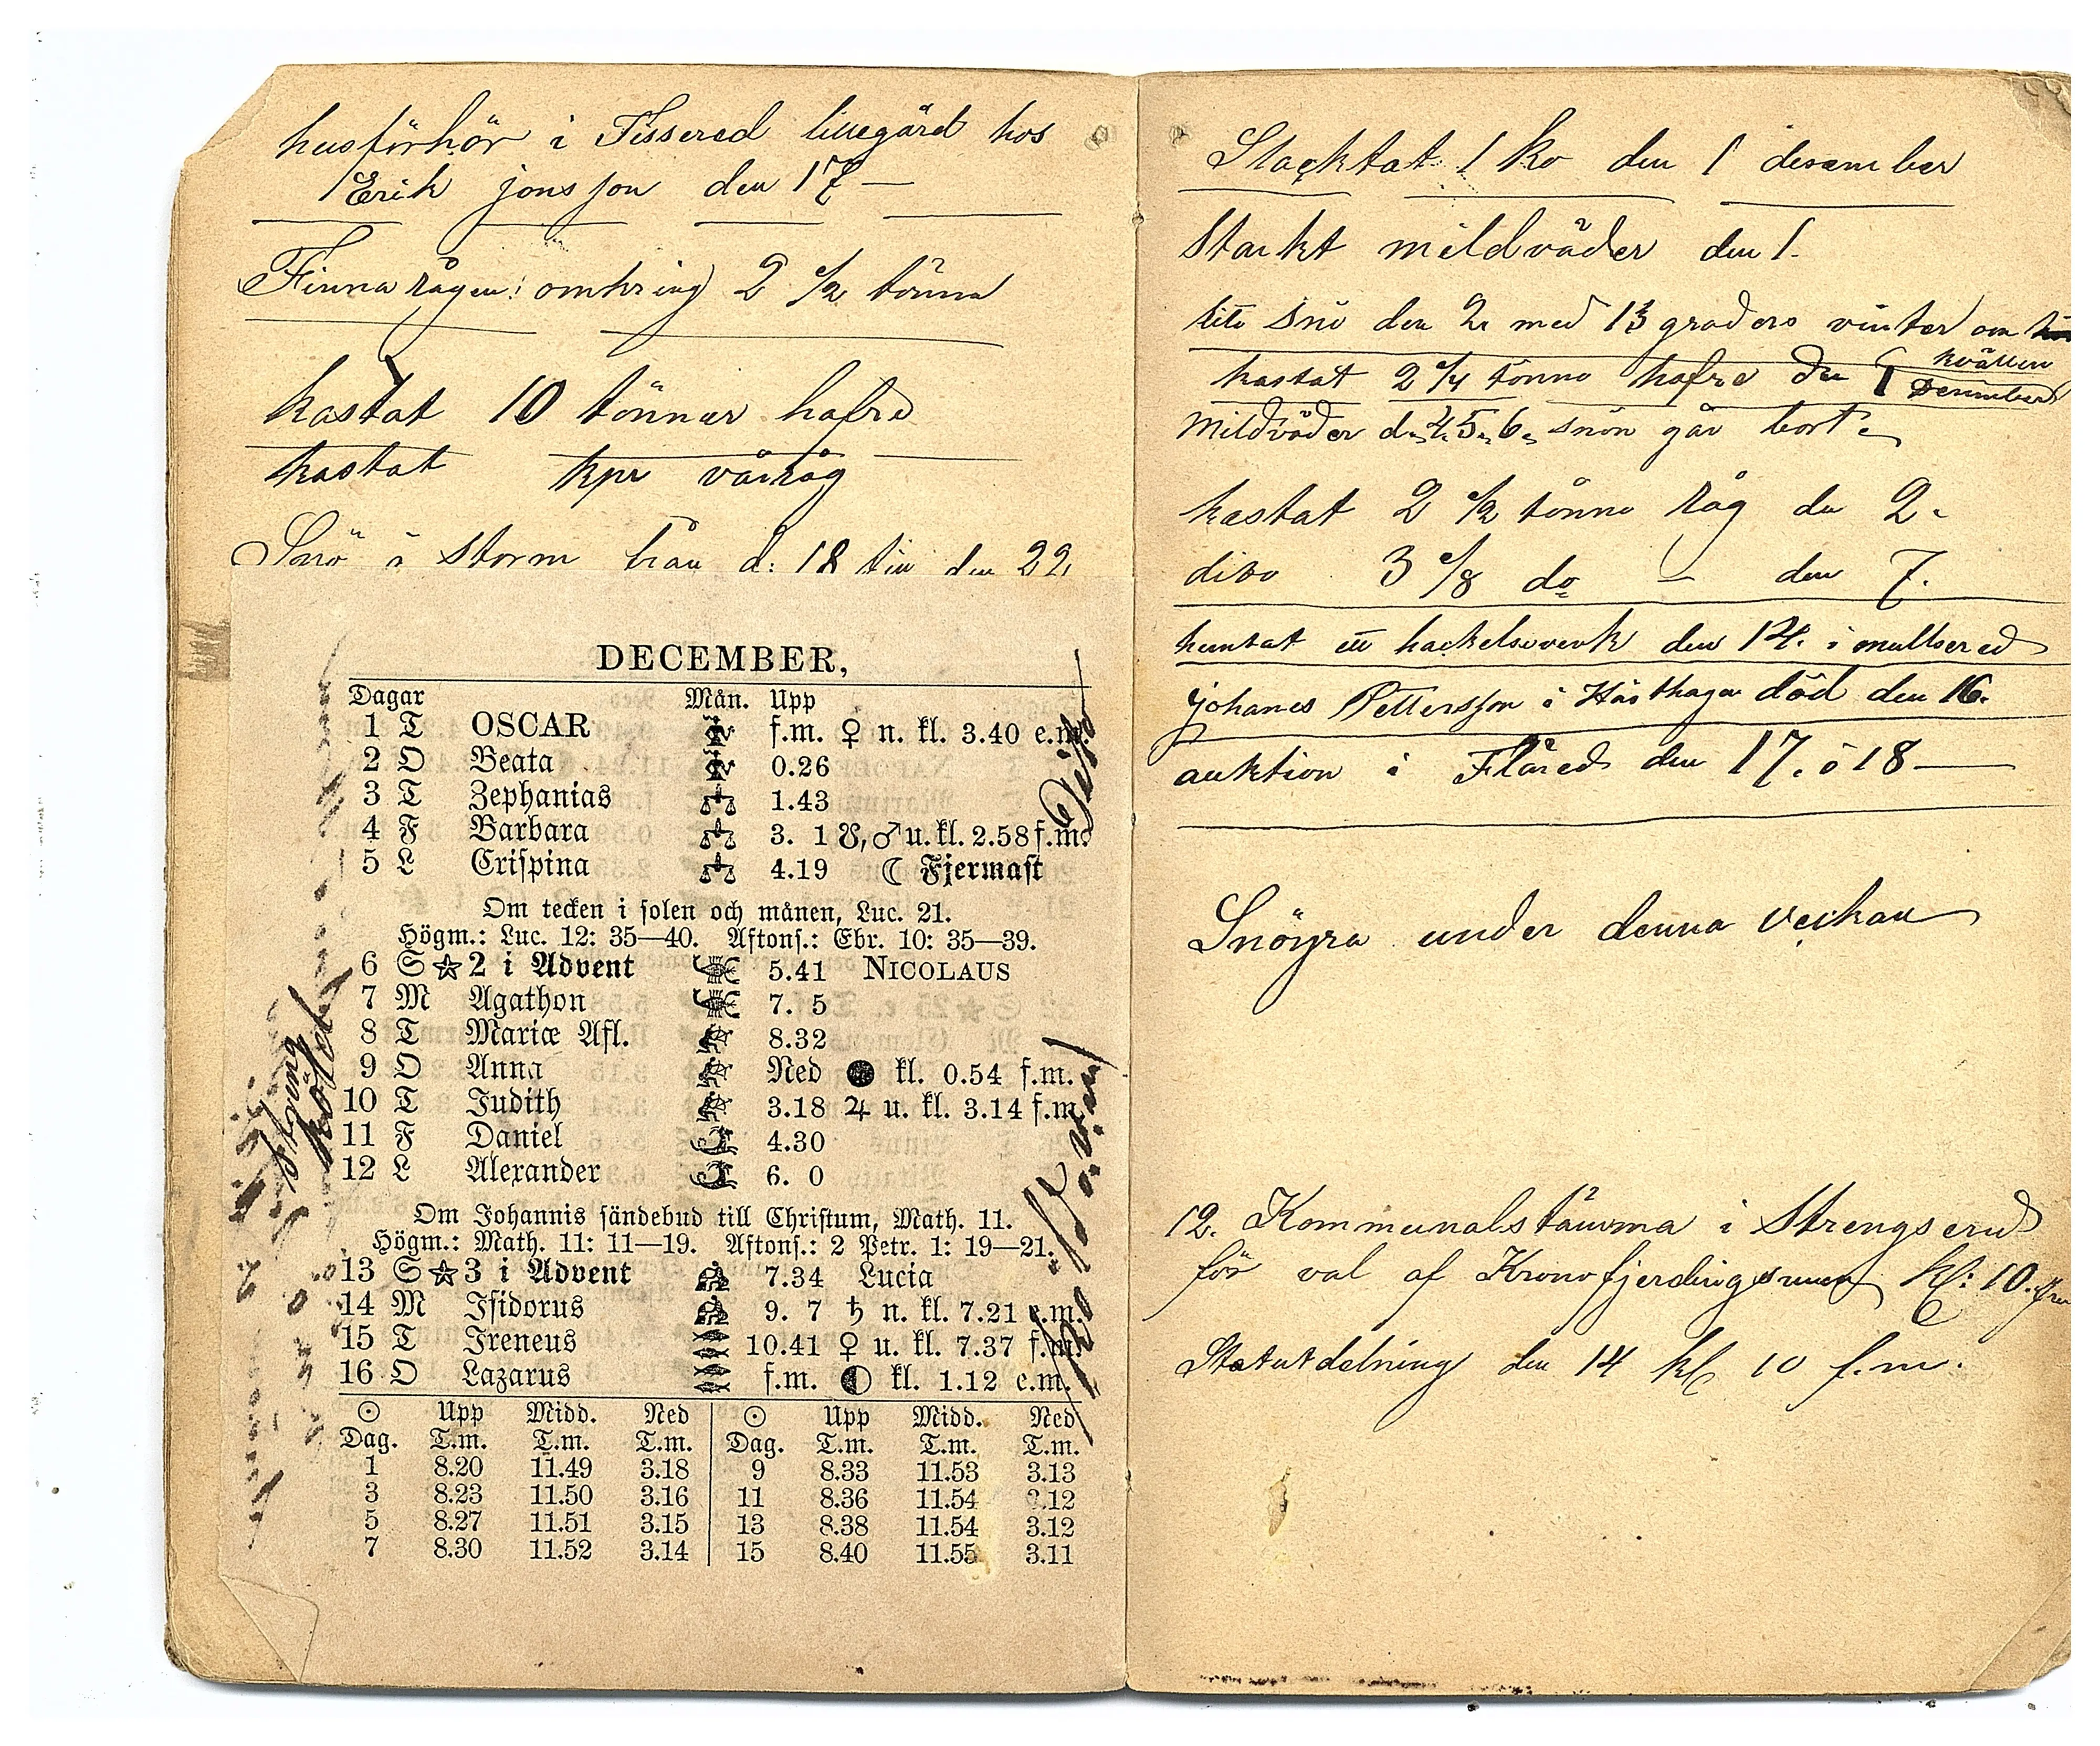 husförhör i Fissered lillegård hos
Erik jonsson den 17 —
Finna rågen: omkring 2 1/2 tönna
kastat 10 tönnar hafre
kastat kpr vårråg
Snö å storm från d: 18 till den 22,
DECEMBER,
Dagar Mån. Upp
1 T OSCAR f.m. ♀ n. kl. 3.40 e.m.
2 O Beata 0.26
3 T Zephanias 1.43
4 F Barbara 3. 1 ☋, ♂ u. kl. 2.58 f.m.
5 L Crispina 4.19 ☾ Fjermast
Om tecken i solen och månen, Luc. 21.
Högm.: Luc. 12: 35—40. Aftons.: Ebr. 10: 35—39.
6 S ☆ 2 i Advent 5.41 NICOLAUS
7 M Agathon 7. 5
8 T Mariæ Afl. 8.32
9 O Anna Ned ● kl. 0.54 f.m.
10 T Judith 3.18 ♃ u. kl. 3.14 f.m.
11 F Daniel 4.30
12 L Alexander 6. 0
Om Johannis sändebud till Christum, Math. 11.
Högm.: Math. 11: 11—19. Aftons.: 2 Petr. 1: 19—21.
13 S ☆ 3 i Advent 7.34 Lucia
14 M Isidorus 9. 7 ♄ n. kl. 7.21 e.m.
15 T Ireneus 10.41 ♀ u. kl. 7.37 f.m.
16 O Lazarus f.m. ◐ kl. 1.12 e.m.
☉ Upp Midd. Ned ☉ Upp Midd. Ned
Dag. T.m. T.m. T.m. Dag. T.m. T.m. T.m.
1 8.20 11.49 3.18 9 8.33 11.53 3.13
3 8.23 11.50 3.16 11 8.36 11.54 3.12
5 8.27 11.51 3.15 13 8.38 11.54 3.12
7 8.30 11.52 3.14 15 8.40 11.55 3.11
sträng
köld
Dito
Slacktat 1 ko den 1 desember
Starkt mildväder den 1.
lite snö den 2 med 13 graders vinter om
kvällen
kastat 2 1/4 tönna hafre den 1 December
Mildväder d. 4, 5, 6, snön går bort.
kastat 2 1/2 tönna råg de 2.
dito 3 1/8 do — den 7.
hemtat ett hackelseverk den 14. i mullsered
johanes Pettersson i Hästhagen död den 16.
auktion i Flåred den 17. å 18 —
Snöyra under denna veckan
12. Kommunalstämma i Strengsered
för val af Kronofjerdingsman kl: 10. fm
Statutdelning den 14 kl 10 f.m.